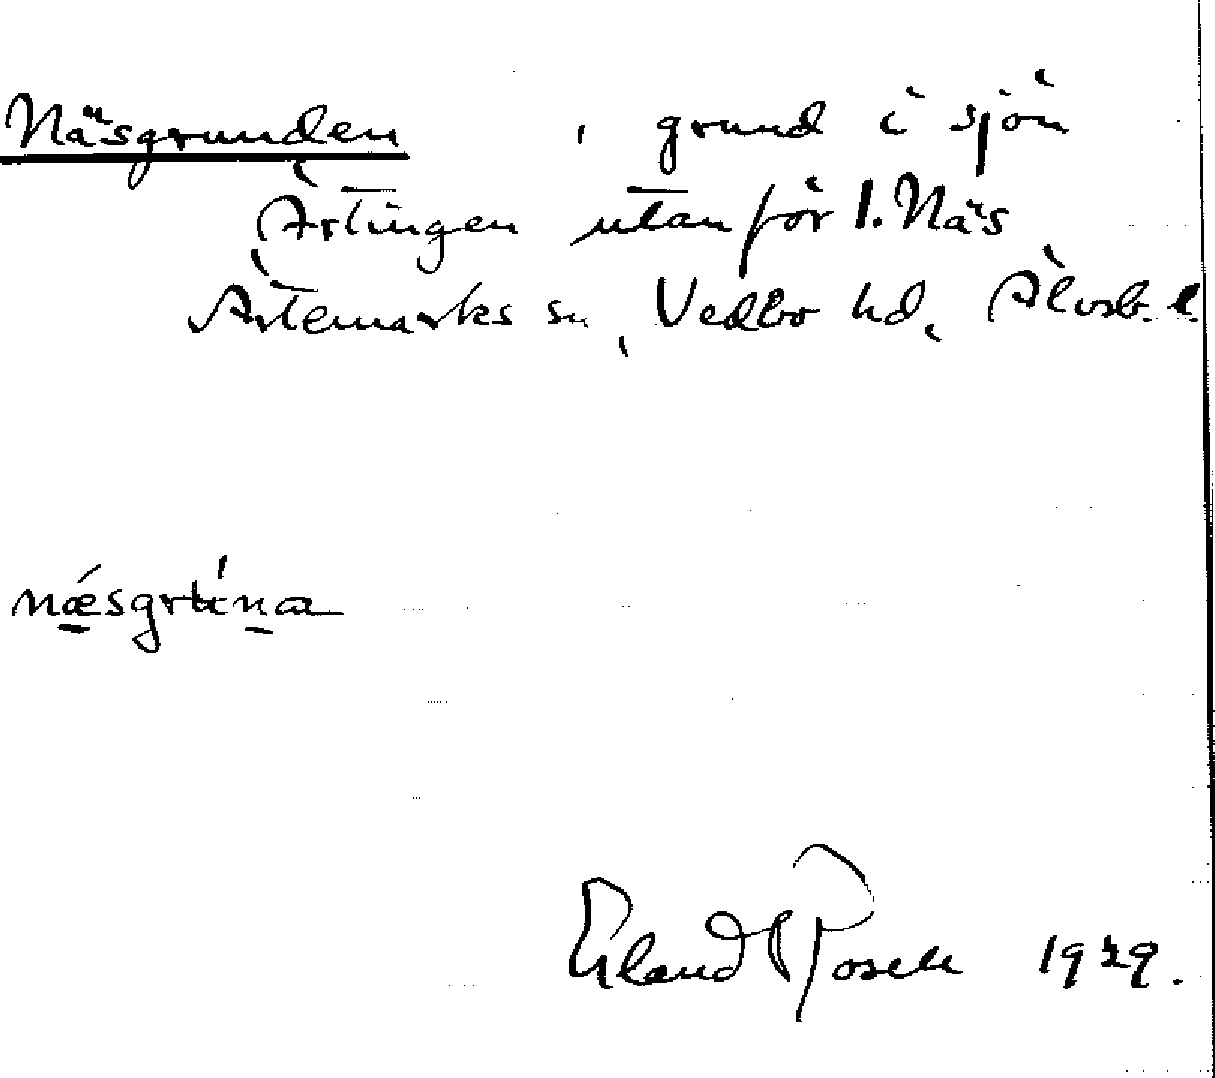 Näsgrunden , grund i sjön
Ärtingen utanför l. Näs
Ärtemarks sn, Vedbo hd, Älvsb. l.
nǽ̱sgrʉ́n̠a
Erland Rosell 1929.